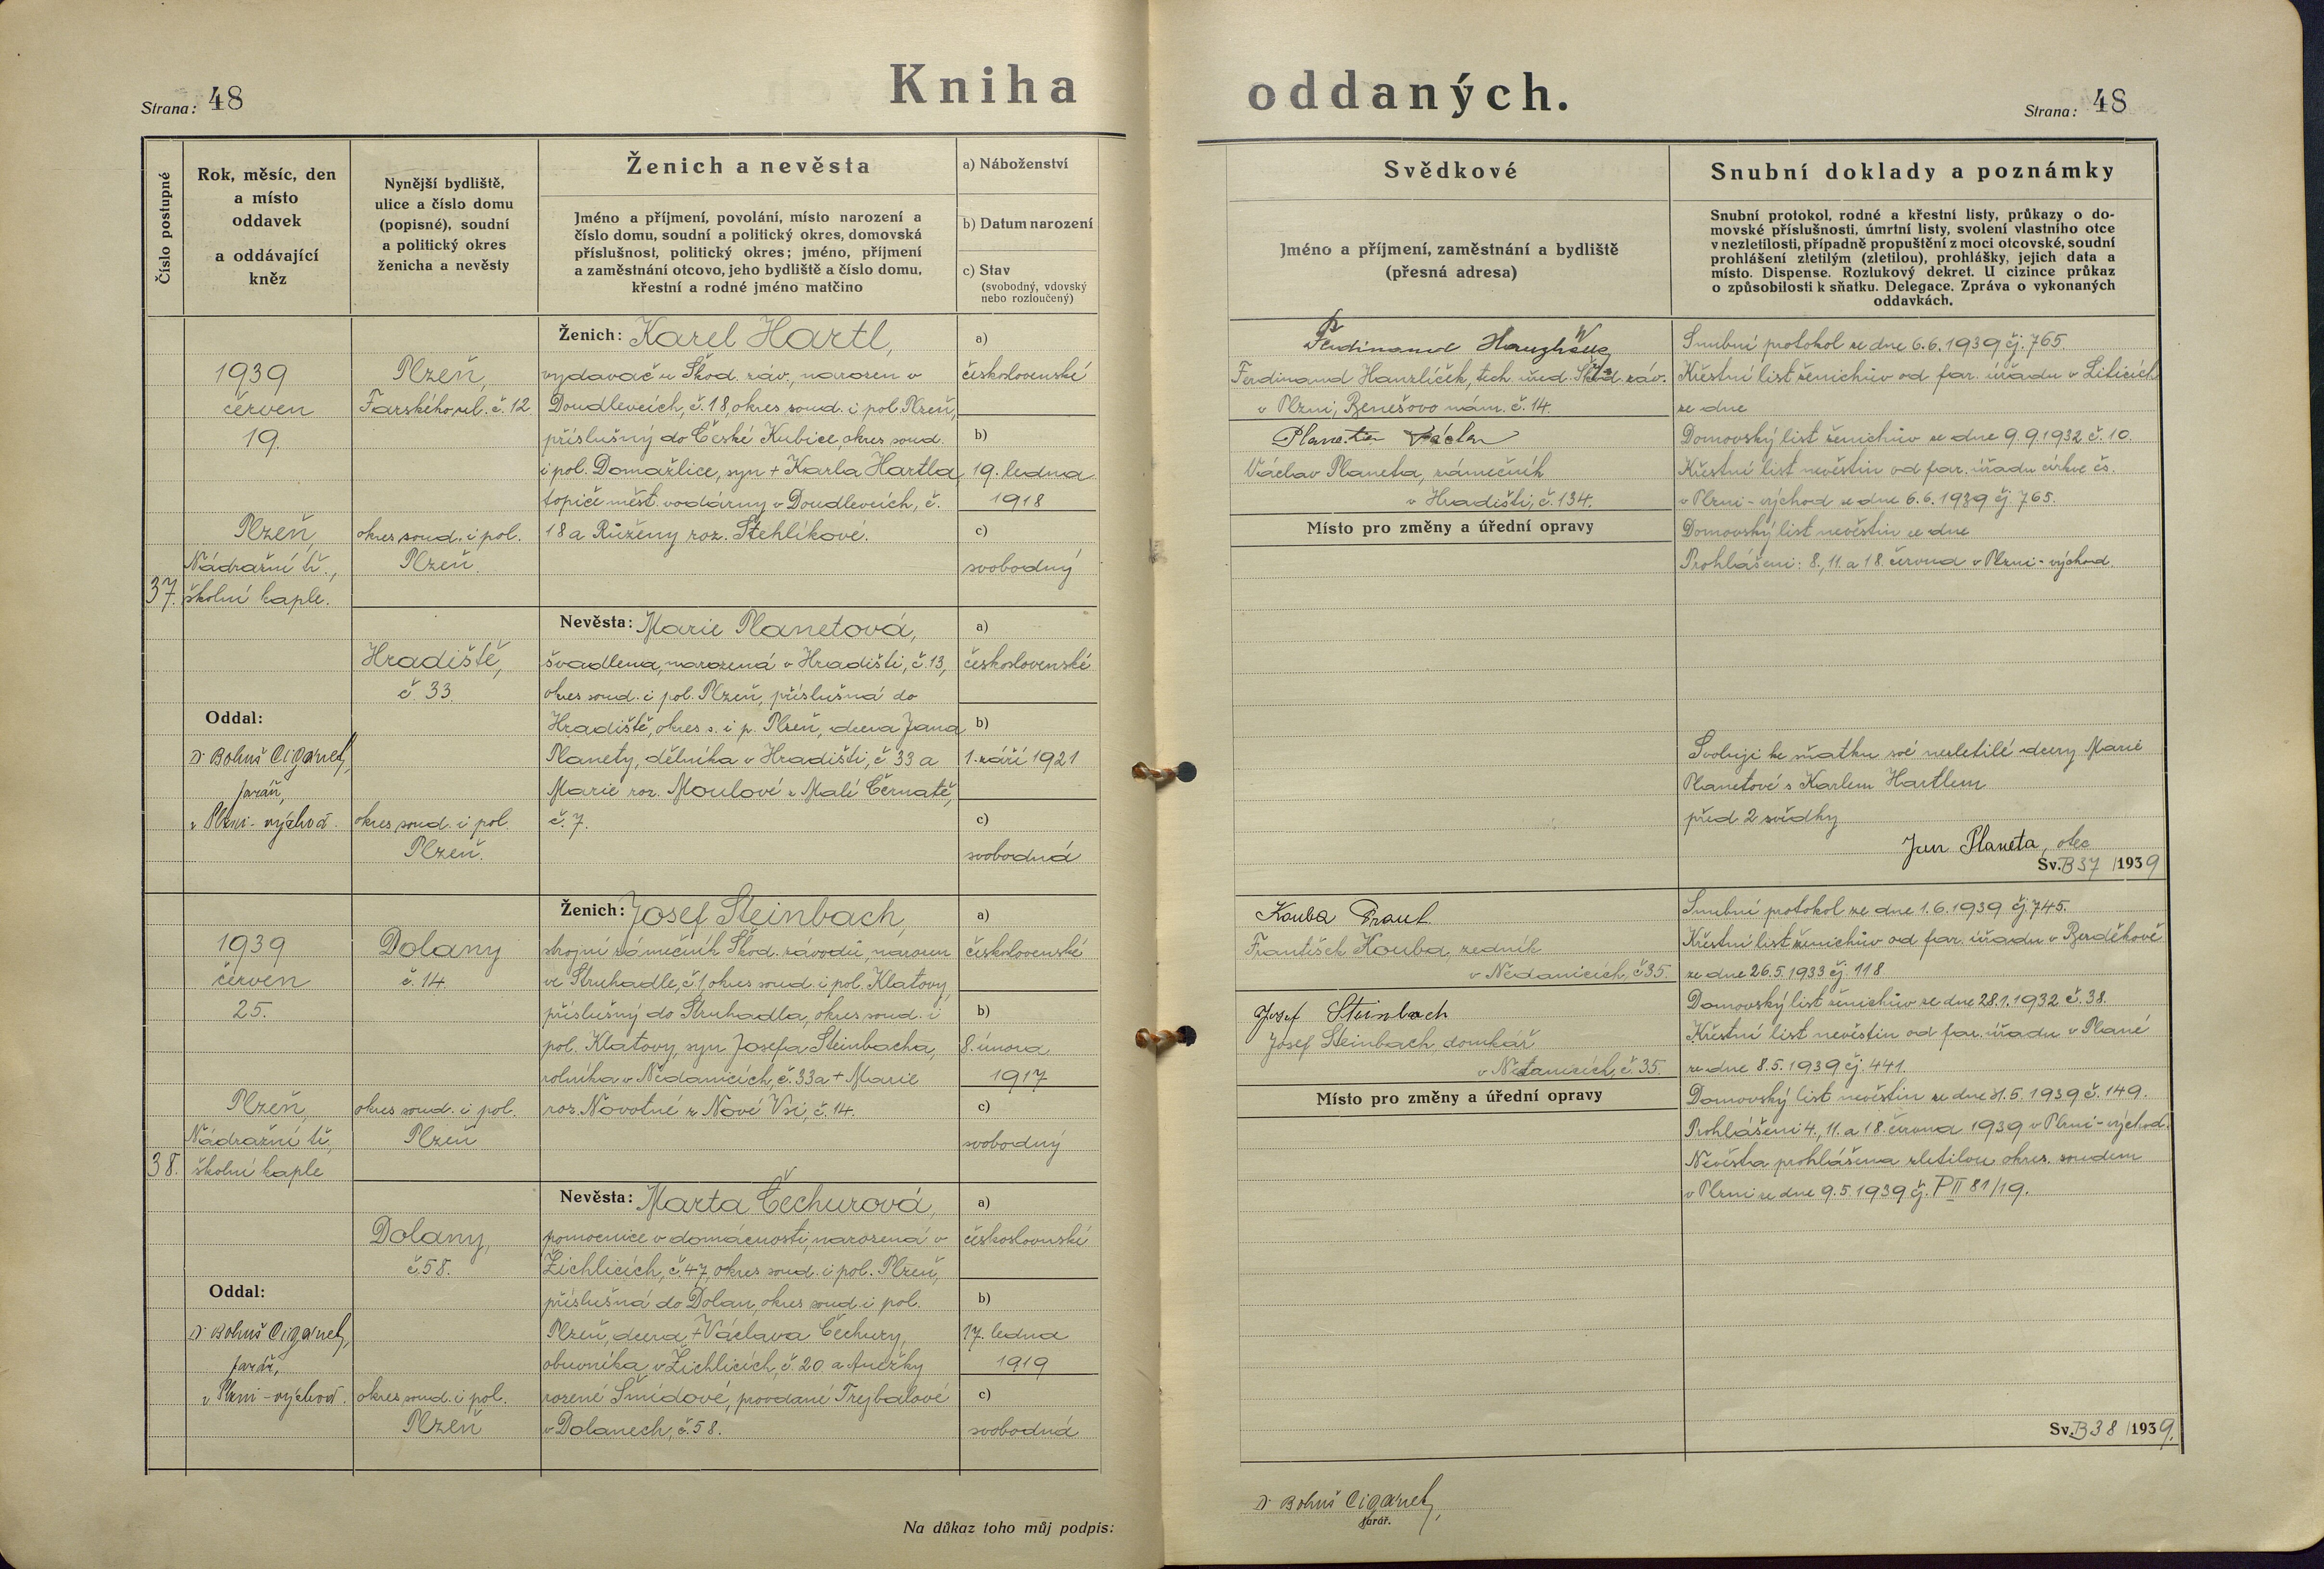 Kniha oddaných.
Strana: 48
Strana: 48
Číslo postupné
Rok, měsíc, den
a místo
oddavek
a oddávající
kněz
Nynější bydliště,
ulice a číslo domu
(popisné), soudní
a politický okres
ženicha a nevěsty
Ženich a nevěsta
Jméno a příjmení, povolání, místo narození a
číslo domu, soudní a politický okres, domovská
příslušnost, politický okres; jméno, příjmení
a zaměstnání otcovo, jeho bydliště a číslo domu,
křestní a rodné jméno matčino
a) Náboženství
b) Datum narození
c) Stav
(svobodný, vdovský
nebo rozloučený)
Svědkové
Jméno a příjmení, zaměstnání a bydliště
(přesná adresa)
Snubní doklady a poznámky
Snubní protokol, rodné a křestní listy, průkazy o do-
movské příslušnosti, úmrtní listy, svolení vlastního otce
v nezletilosti, případně propuštění z moci otcovské, soudní
prohlášení zletilým (zletilou), prohlášky, jejich data a
místo. Dispense. Rozlukový dekret. U cizince průkaz
o způsobilosti k sňatku. Delegace. Zpráva o vykonaných
oddavkách.
37.
1939
červen
19.
Plzeň,
Nádražní tř.,
školní kaple.
Oddal:
Dr Bohuš Cigánek,
farář,
v Plzni - východ.
Plzeň,
Farského ul. č. 12
okres soud. i pol.
Plzeň.
Hradiště,
č 33.
okres soud. i pol.
Plzeň.
Ženich: Karel Hartl,
vydavač u Škod. záv., narozen v
Doudlevcích, č. 18, okres soud. i pol. Plzeň,
příslušný do České Kubice, okres soud.
i pol. Domažlice, syn + Karla Hartla,
topiče měst. vodárny v Doudlevcích, č.
18 a Růženy roz. Stehlíkové.
a)
československé
b)
19. ledna
1918
c)
svobodný
Nevěsta: Marie Planetová,
švadlena, narozená v Hradišti, č. 13,
okres soud. i pol. Plzeň, příslušná do
Hradiště, okres s. i p. Plzeň, dcera Jana
Planety, dělníka v Hradišti, č 33 a
Marie roz. Moulové z Malé Černatě,
č. 7.
a)
československé
b)
1. září 1921
c)
svobodná
Ferdinand Hanzlíček
Ferdinand Hanzlíček, tech. úřed. Škod. záv.
v Plzni, Benešovo nám. č. 14.
Planeta Václav
Václav Planeta, zámečník
v Hradišti, č. 134.
Místo pro změny a úřední opravy
Snubní protokol ze dne 6.6.1939 čj. 765.
Křestní list ženichův od far. úřadu v Liticích
ze dne
Domovský list ženichův ze dne 9.9.1932 č. 10.
Křestní list nevěstin od far. úřadu církve čs.
v Plzni - východ ze dne 6.6.1939 čj. 765.
Domovský list nevěstin ze dne
Prohlášeni: 8., 11. a 18. června v Plzni - východ.
Svoluji ke sňatku své nezletilé dcery Marie
Planetové s Karlem Hartlem
před 2 svědky
Jan Planeta, otec
Sv. B 37 /1939
38.
1939
červen
25.
Plzeň,
Nádražní tř.,
školní kaple
Oddal:
Dr Bohuš Cigánek,
farář,
v Plzni - východ.
Dolany
č. 14.
okres soud. i pol.
Plzeň
Dolany,
č. 58.
okres soud. i pol.
Plzeň
Ženich: Josef Steinbach,
strojní zámečník Škod. závodů, narozen
ve Struhadle, č. 1, okres soud. i pol. Klatovy,
příslušný do Struhadla, okres soud. i
pol. Klatovy, syn Josefa Steinbacha,
rolníka v Nedanicích, č. 33 a + Marie
roz. Novotné z Nové Vsi, č. 14.
a)
československé
b)
8. února
1917
c)
svobodný
Nevěsta: Marta Čechurová,
pomocnice v domácnosti, narozená v
Žichlicích, č. 47, okres soud. i pol. Plzeň,
příslušná do Dolan, okres soud. i pol.
Plzeň, dcera + Václava Čechury,
obuvníka v Žichlicích, č. 20 a Anežky
rozené Šmídové, provdané Trejbalové
v Dolanech, č. 58.
a)
československé
b)
17. ledna
1919
c)
svobodná
Kouba Frant.
František Kouba, zedník
v Nedanicích, č 35.
Josef Steinbach
Josef Steinbach, domkář
v Nedanicích, č. 35.
Místo pro změny a úřední opravy
Snubní protokol ze dne 1.6.1939 čj. 745.
Křestní list ženichův od far. úřadu v Bezděkově
ze dne 26.5.1933 čj. 118
Domovský list ženichův ze dne 28.1.1932 č. 38.
Křestní list nevěstin od far. úřadu v Plané
ze dne 8.5.1939 čj. 441.
Domovský list nevěstin ze dne 31.5.1939 č. 149.
Prohlášeni 4., 11. a 18. června 1939 v Plzni - východ.
Nevěsta prohlášena zletilou okres. soudem
v Plzni ze dne 9.5.1939 čj. P II 81/19.
Sv. B 38 /1939.
Na důkaz toho můj podpis:
Dr Bohuš Cigánek,
farář.